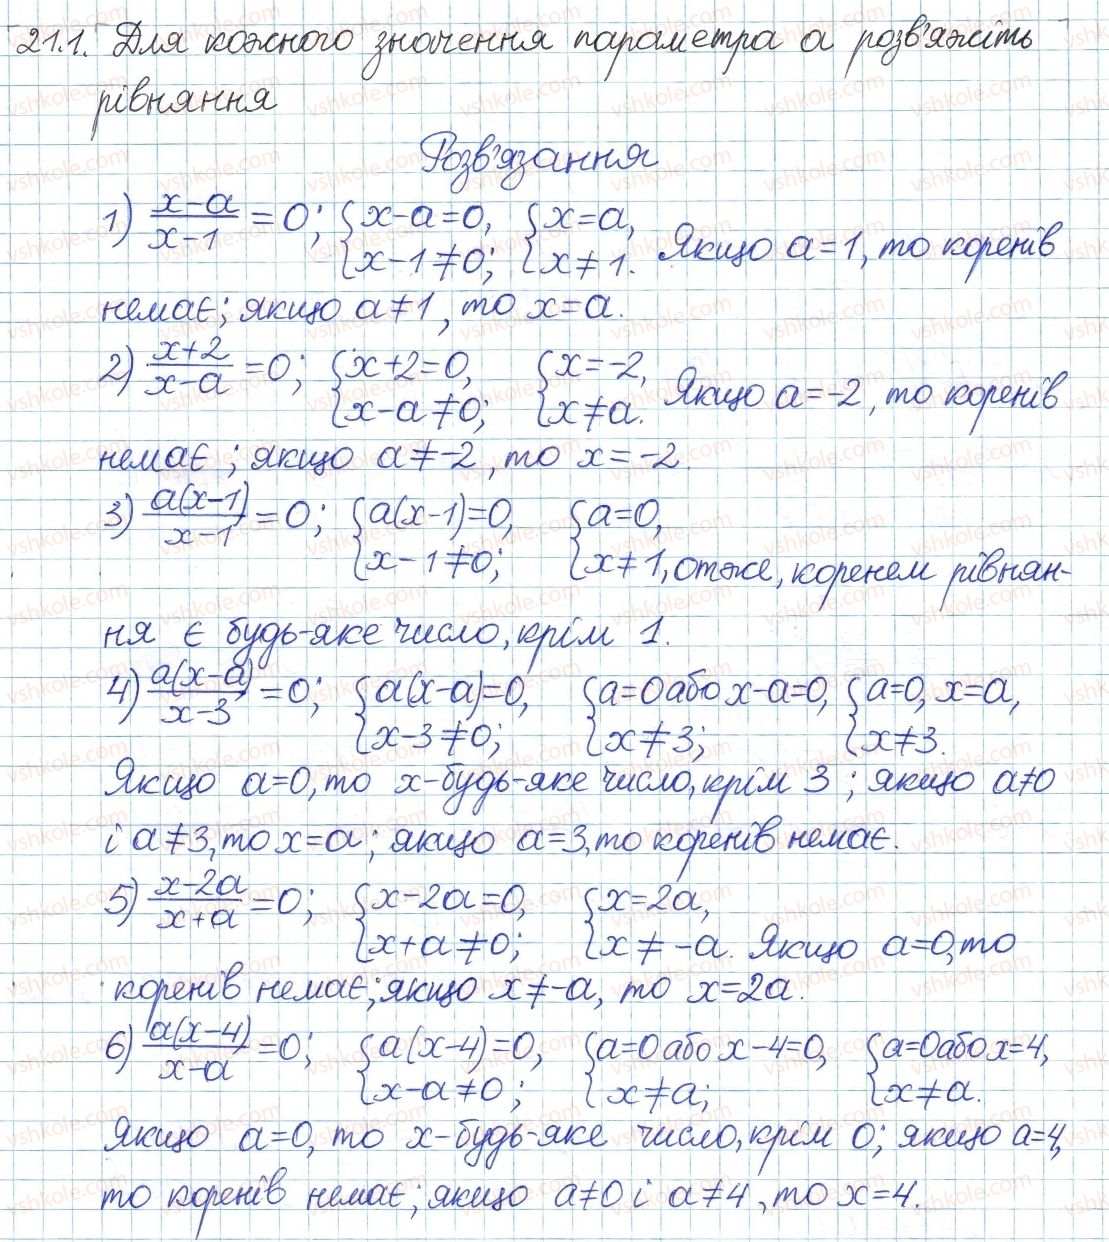 21.1. Для кожного значення параметра а розв'яжіть
рівняння
Розв'язання
1) (x-a)/(x-1) = 0; {x-a=0, x-1≠0; {x=a, x≠1. Якщо a=1, то коренів
немає; якщо a≠1, то x=a.
2) (x+2)/(x-a) = 0; {x+2=0, x-a≠0; {x=-2, x≠a. Якщо a=-2, то коренів
немає; якщо a≠-2, то x=-2.
3) a(x-1)/(x-1) = 0; {a(x-1)=0, x-1≠0; {a=0, x≠1, отже, коренем рівнян-
ня є будь-яке число, крім 1.
4) a(x-a)/(x-3) = 0; {a(x-a)=0, x-3≠0; {a=0 або x-a=0, x≠3; {a=0, x=a, x≠3.
Якщо a=0, то x-будь-яке число, крім 3; якщо a≠0
і a≠3, то x=a; якщо a=3, то коренів немає.
5) (x-2a)/(x+a) = 0; {x-2a=0, x+a≠0; {x=2a, x≠-a. Якщо a=0, то
коренів немає; якщо x≠-a, то x=2a.
6) a(x-4)/(x-a) = 0; {a(x-4)=0, x-a≠0; {a=0 або x-4=0, x≠a; {a=0 або x=4, x≠a.
Якщо a=0, то x-будь-яке число, крім 0; якщо a=4,
то коренів немає; якщо a≠0 і a≠4, то x=4.